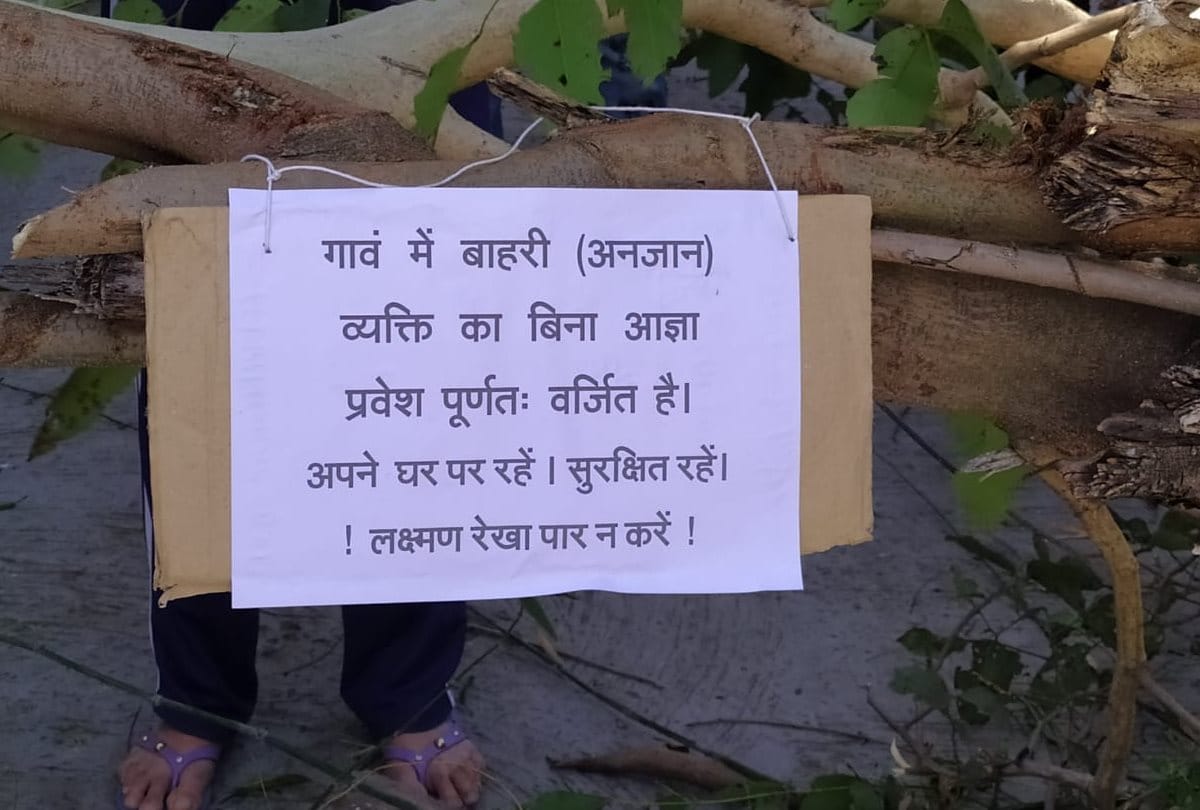 गावं में बाहरी (अनजान)
व्यक्ति का बिना आज्ञा
प्रवेश पूर्णतः वर्जित है।
अपने घर पर रहें । सुरक्षित रहें।
! लक्ष्मण रेखा पार न करें !